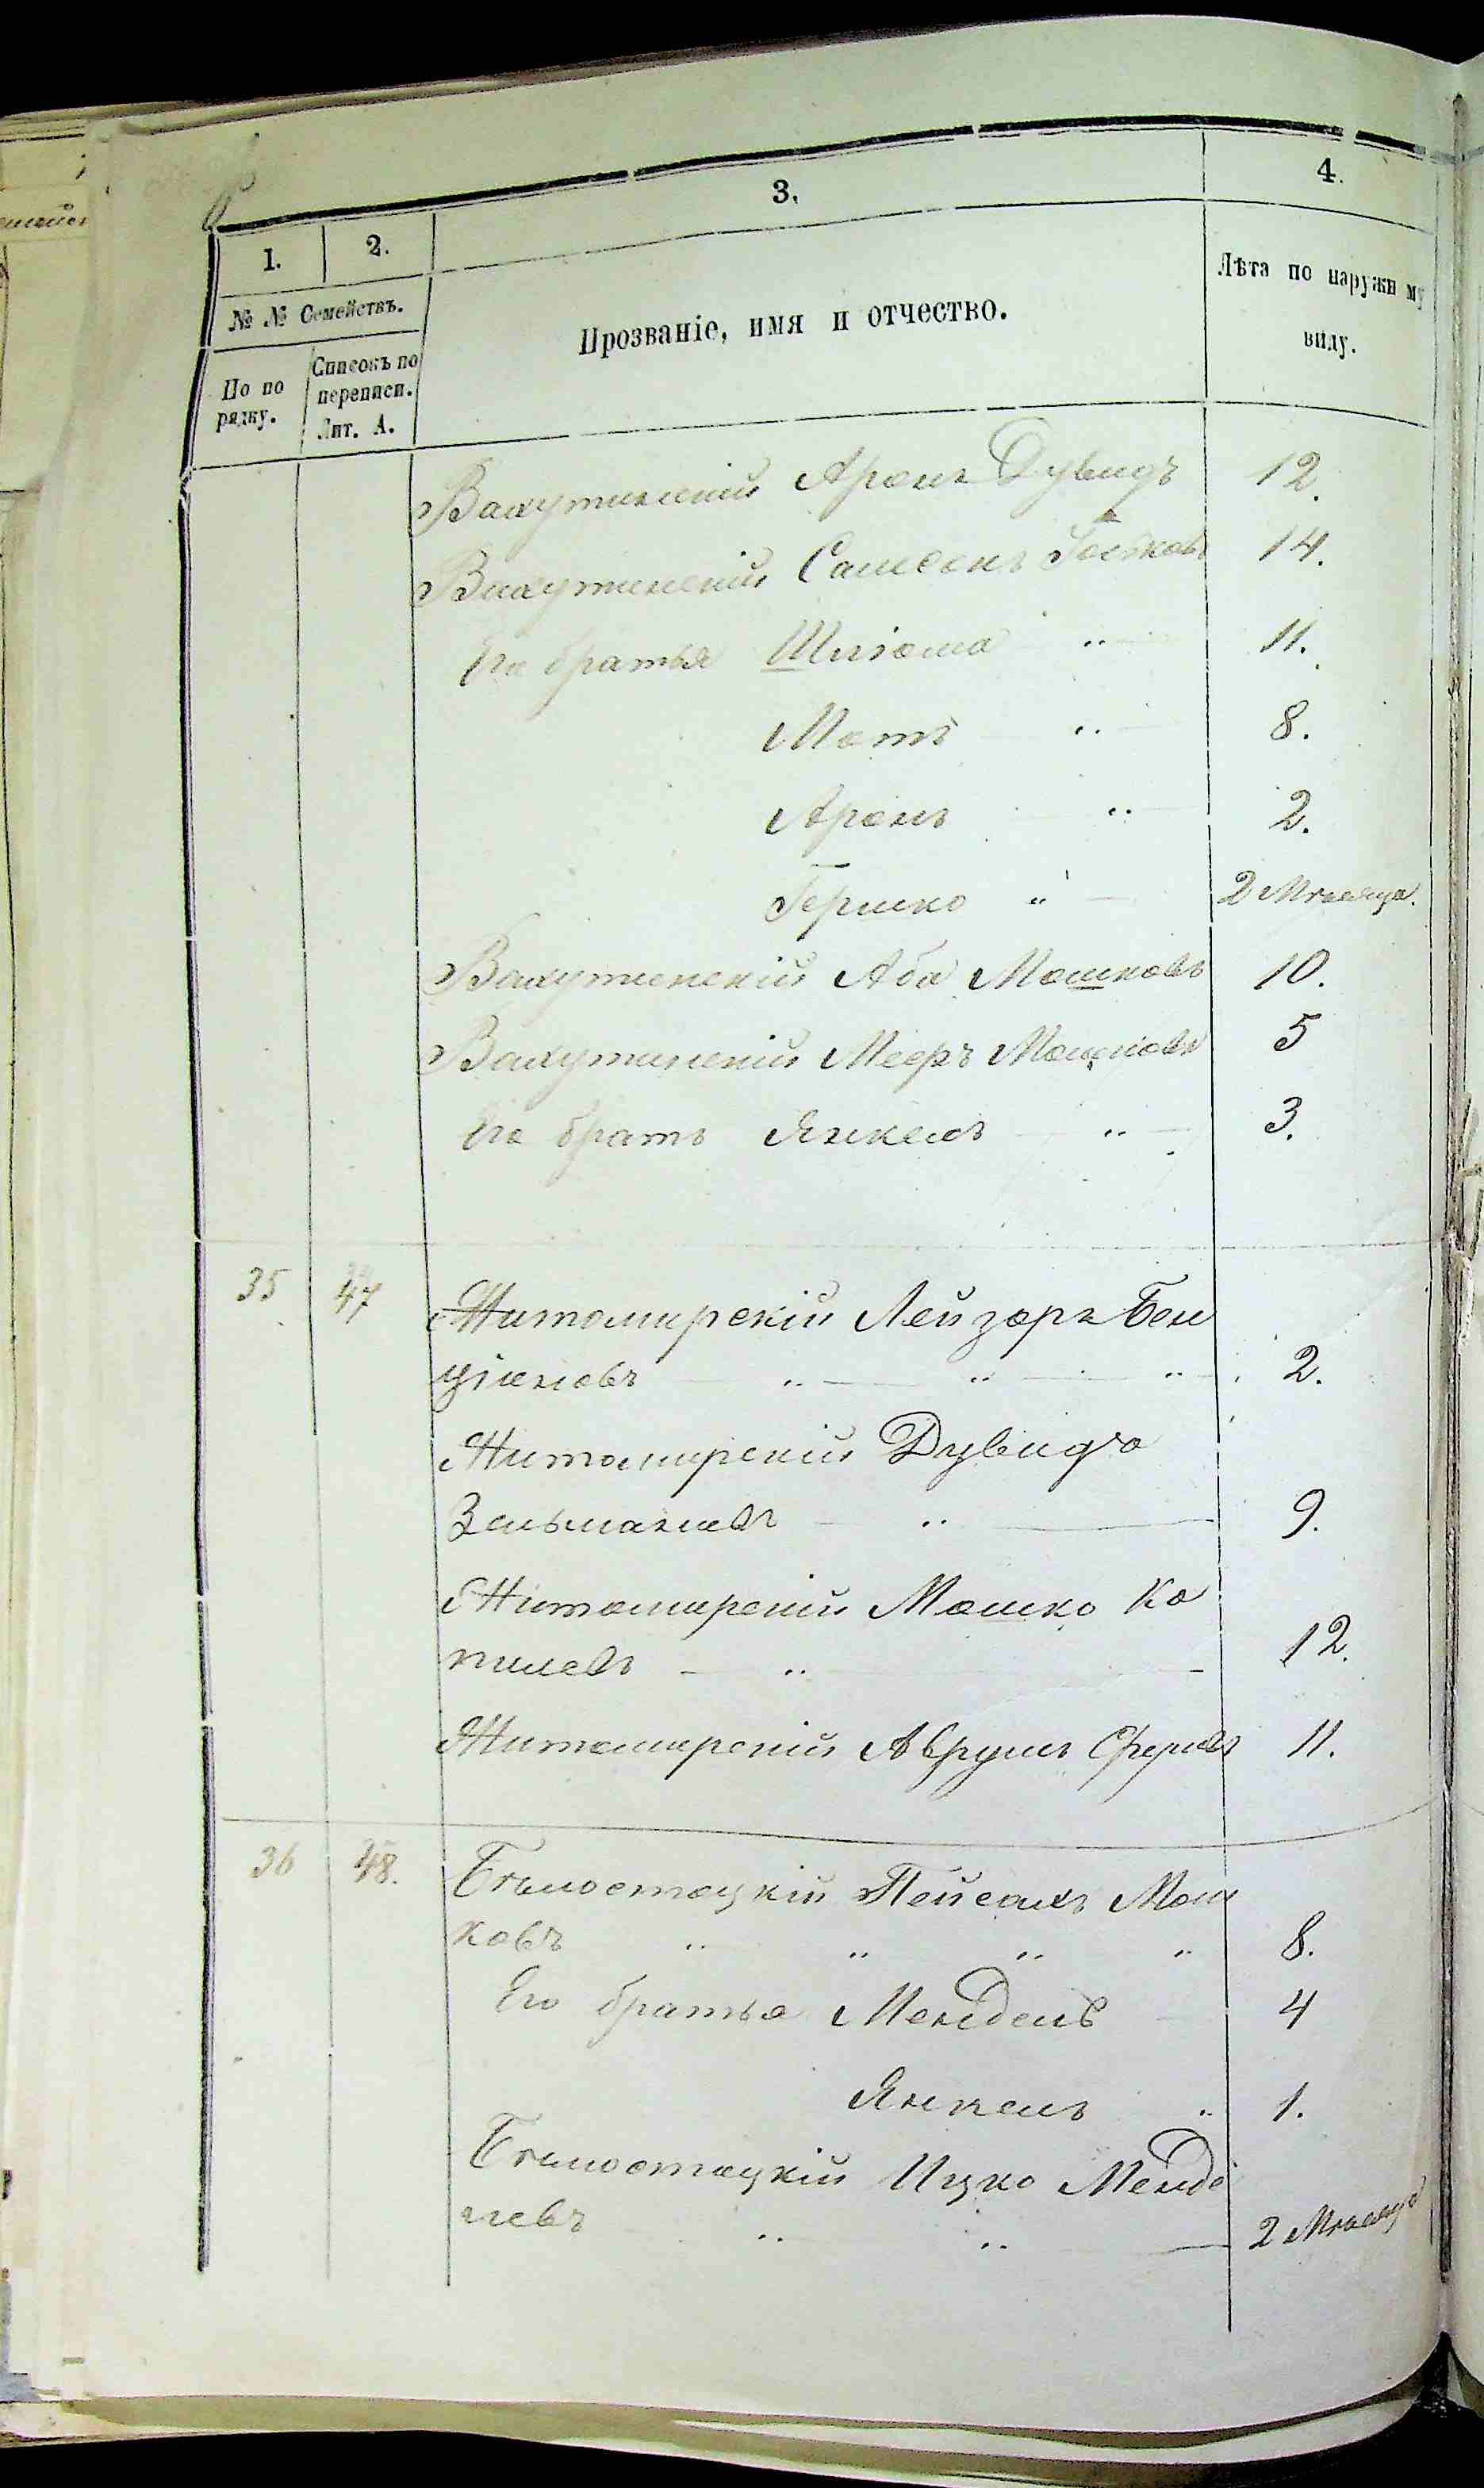 3.
4.
1.
2.
№ № Семействъ.
Прозваніе, имя и отчество.
Лѣта по наружн му
виду.
По по
рядку.
Списокъ по
переписи.
Лит. А.
Вахутинскій Аронъ Дувидъ 12.
Вахутинскій Самсонъ Іоськовъ 14.
Его братья Шліома „ 11.
Мотъ „ 8.
Аронъ „ 2.
Гершко „ 2 Мѣсяца.
Вахутинскій Аба Мошковъ 10.
Вахутинскій Мееръ Мошковъ 5
Его братъ Янкель „ 3.
35 47 Житомирскій Лейзоръ Бен
ціановъ „ „ „ 2.
Житомирскій Дувидъ
Зельмановъ „ 9.
Житомирскій Мошко Ко
пилевъ „ 12.
Житомирскій Аврумъ 11.
36 48. Бѣлостоцкій Пейсахъ Мош
ковъ „ „ „ „ 8.
Его братья Мендель 4
Янкель „ 1.
Бѣлостоцкій Ицко Менде
левъ „ „ 2 Мѣсяца